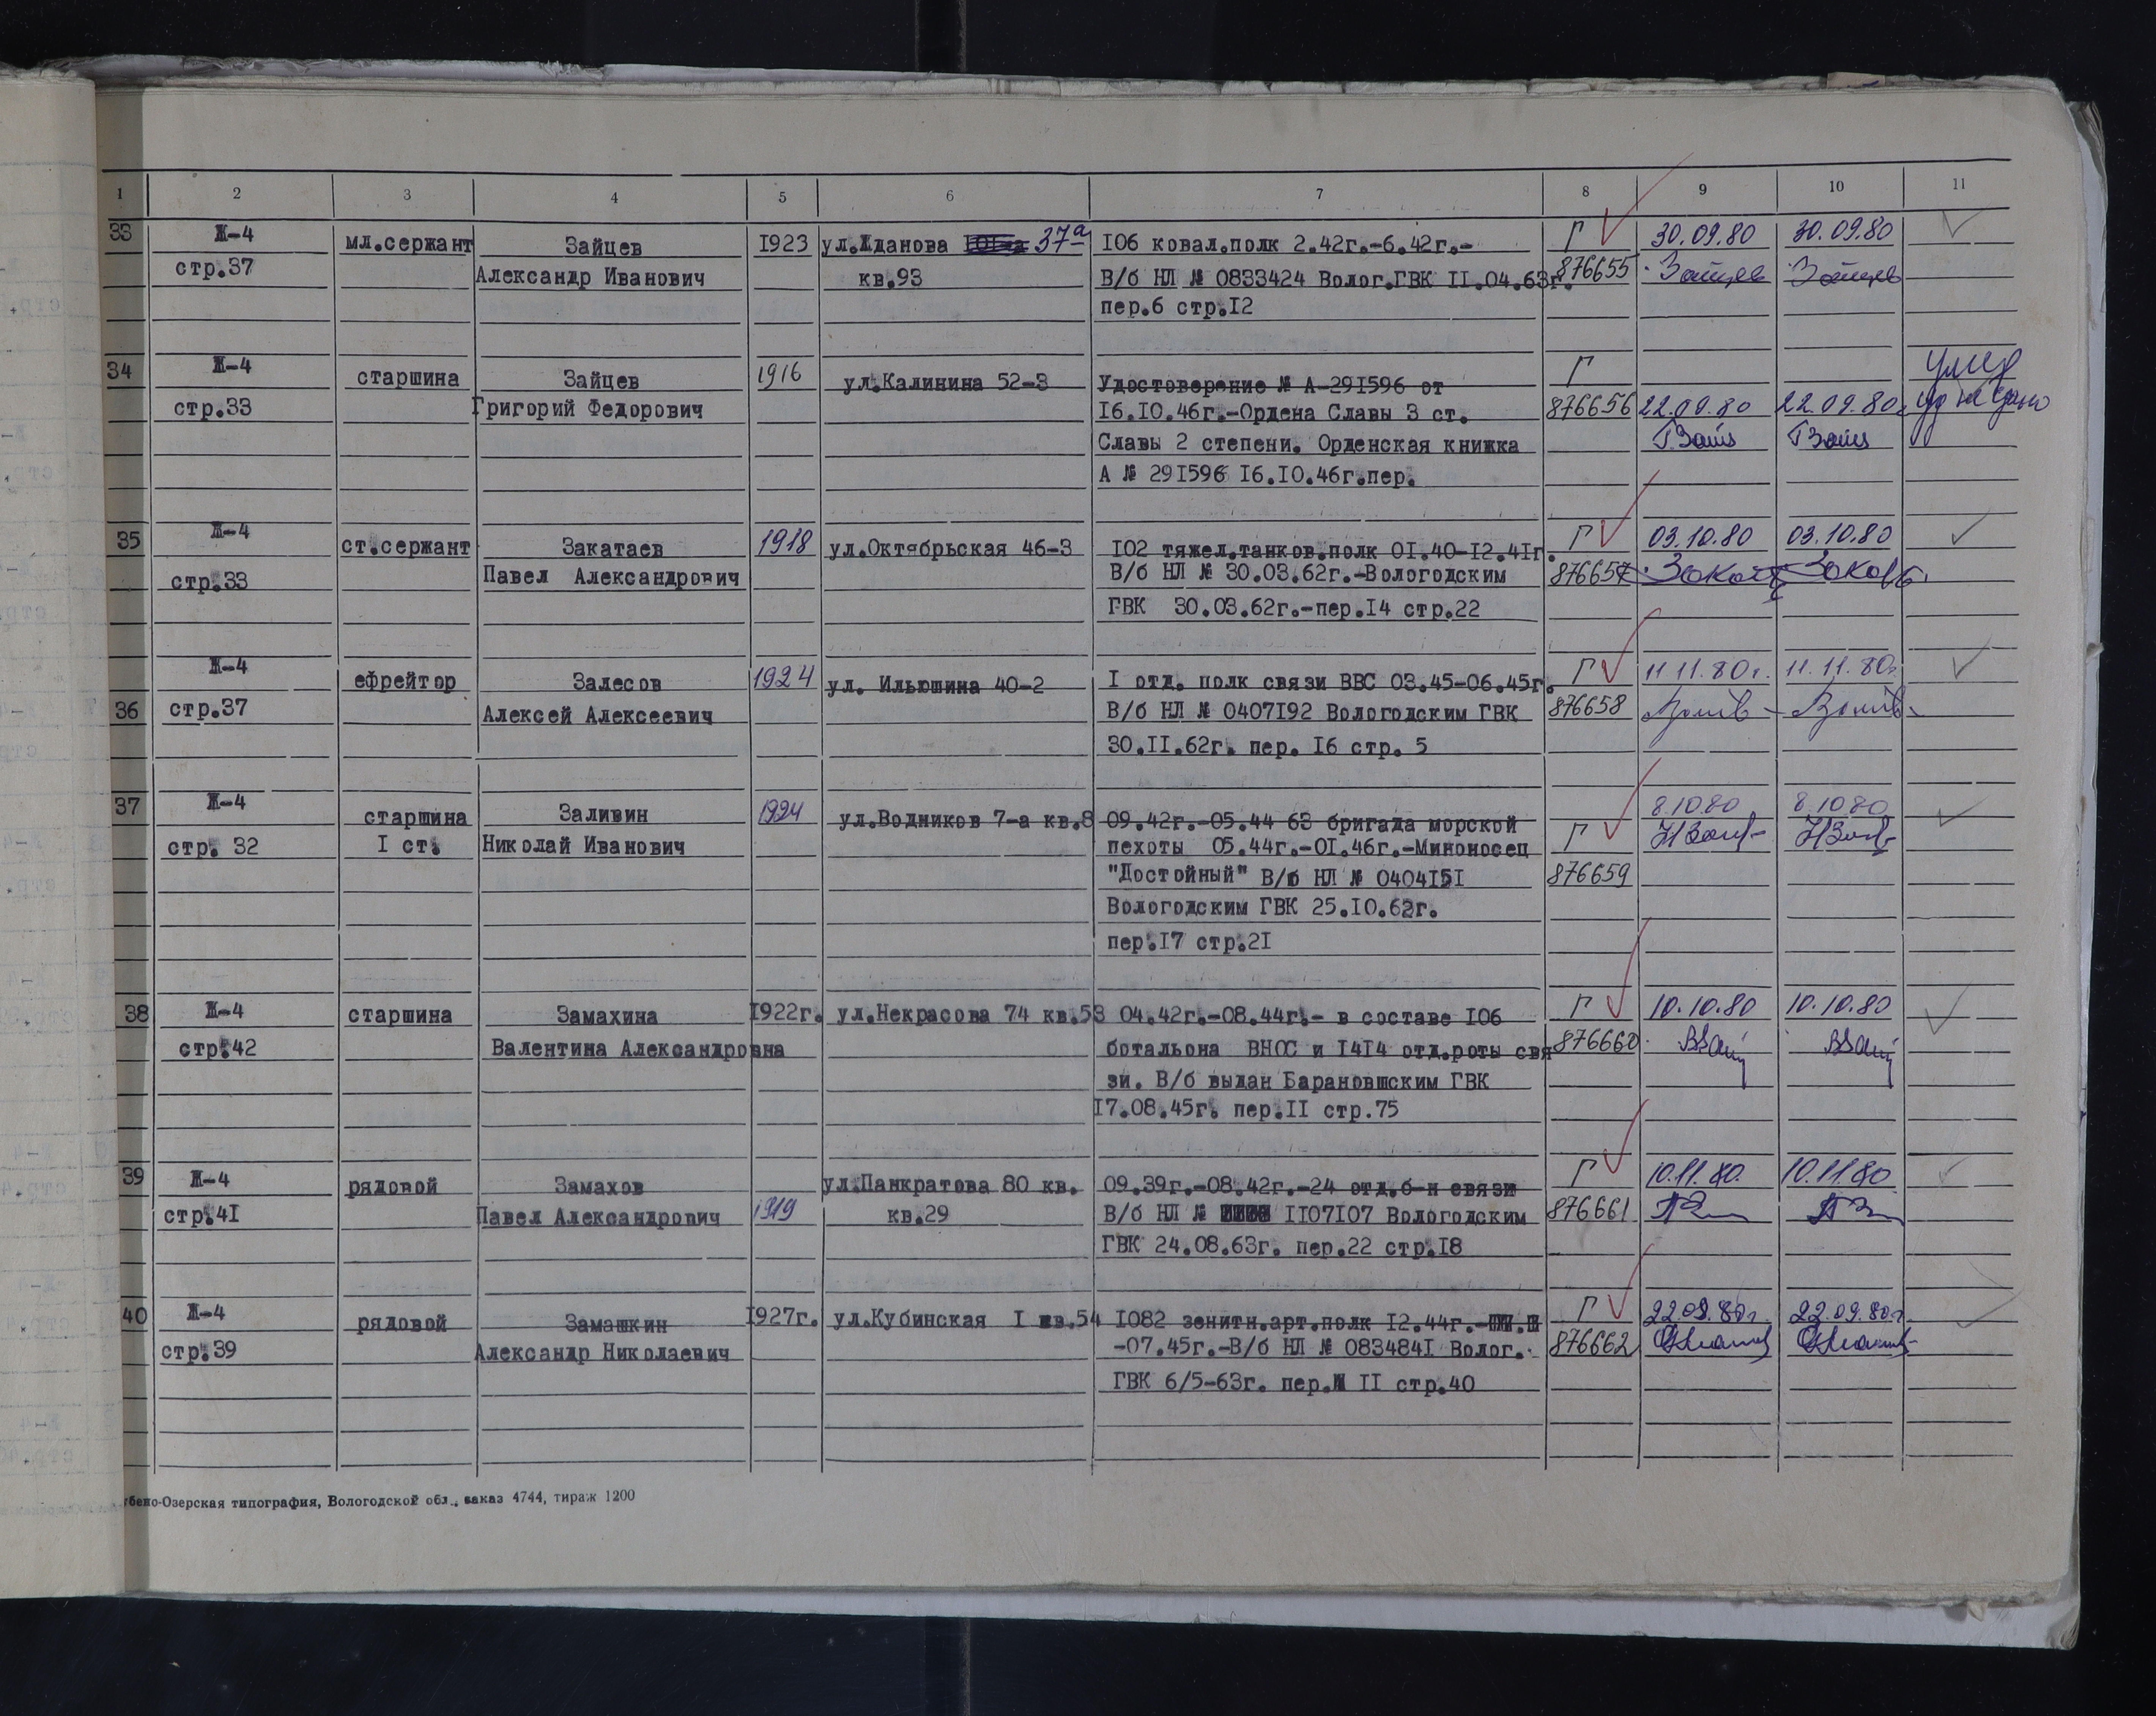 1 2 3 4 5 6 7 8 9 10 11
33 Ж-4 мл.сержант Зайцев 1923 ул.Жданова 37а 106 ковал.полк 2.42г.-6.42г.- Г 30.09.80 30.09.80
стр.37 Александр Иванович кв.93 В/б НЛ № 0833424 Волог.ГВК II.04.63г. 876655 Зайцев Зайцев
пер.6 стр.I2
34 Ж-4 старшина Зайцев 1916 ул.Калинина 52-3 Удостоверение № А-291596 от Г умер
стр.33 Григорий Федорович I6.I0.46г.-Ордена Славы 3 ст. 876656 22.09.80 22.09.80
Славы 2 степени. Орденская книжка ГЗайц ГЗайц
А № 29I596 I6.I0.46г.пер.
35 Ж-4 ст.сержант Закатаев 1918 ул.Октябрьская 46-3 I02 тяжел.танков.полк 0I.40-I2.4Iг. Г 03.10.80 03.10.80
стр.33 Павел Александрович В/б НЛ № 30.03.62г.-Вологодским 876657
ГВК 30.03.62г.-пер.I4 стр.22
Ж-4 ефрейтор Залесов 1924 ул. Ильюшина 40-2 I отд. полк связи ВВС 03.45-06.45г. Г 11.11.80г. 11.11.80г.
36 стр.37 Алексей Алексеевич В/б НЛ № 0407I92 Вологодским ГВК 876658
30.II.62г. пер. I6 стр. 5
37 Ж-4 старшина Заливин 1924 ул.Водников 7-а кв.8 09.42г.-05.44 63 бригада морской 8.10.80 8.10.80
стр. 32 I ст. Николай Иванович пехоты 05.44г.-0I.46г.-Миноносец Г
"Достойный" В/б НЛ № 0404I5I 876659
Вологодским ГВК 25.I0.62г.
пер.I7 стр.2I
38 Ж-4 старшина Замахина I922г. ул.Некрасова 74 кв.53 04.42г.-08.44г.- в составе I06 Г 10.10.80 10.10.80
стр.42 Валентина Александровна ботальона ВНОС и I4I4 отд.роты свя 876660
зи. В/б выдан Барановшским ГВК
I7.08.45г. пер.II стр.75
39 Ж-4 рядовой Замахов ул.Панкратова 80 кв. 09.39г.-08.42г.-24 отд.б-н связи Г 10.11.80. 10.11.80
стр.4I Павел Александрович 1919 кв.29 В/б НЛ № II07I07 Вологодским 876661
ГВК 24.08.63г. пер.22 стр.I8
40 Ж-4 рядовой Замашкин I927г. ул.Кубинская I кв.54 I082 зенитн.арт.полк I2.44г.- Г 22.09.80г. 22.09.80г.
стр.39 Александр Николаевич -07.45г.-В/б НЛ № 083484I Волог. 876662
ГВК 6/5-63г. пер.№ II стр.40
бено-Озерская типография, Вологодской обл., заказ 4744, тираж 1200